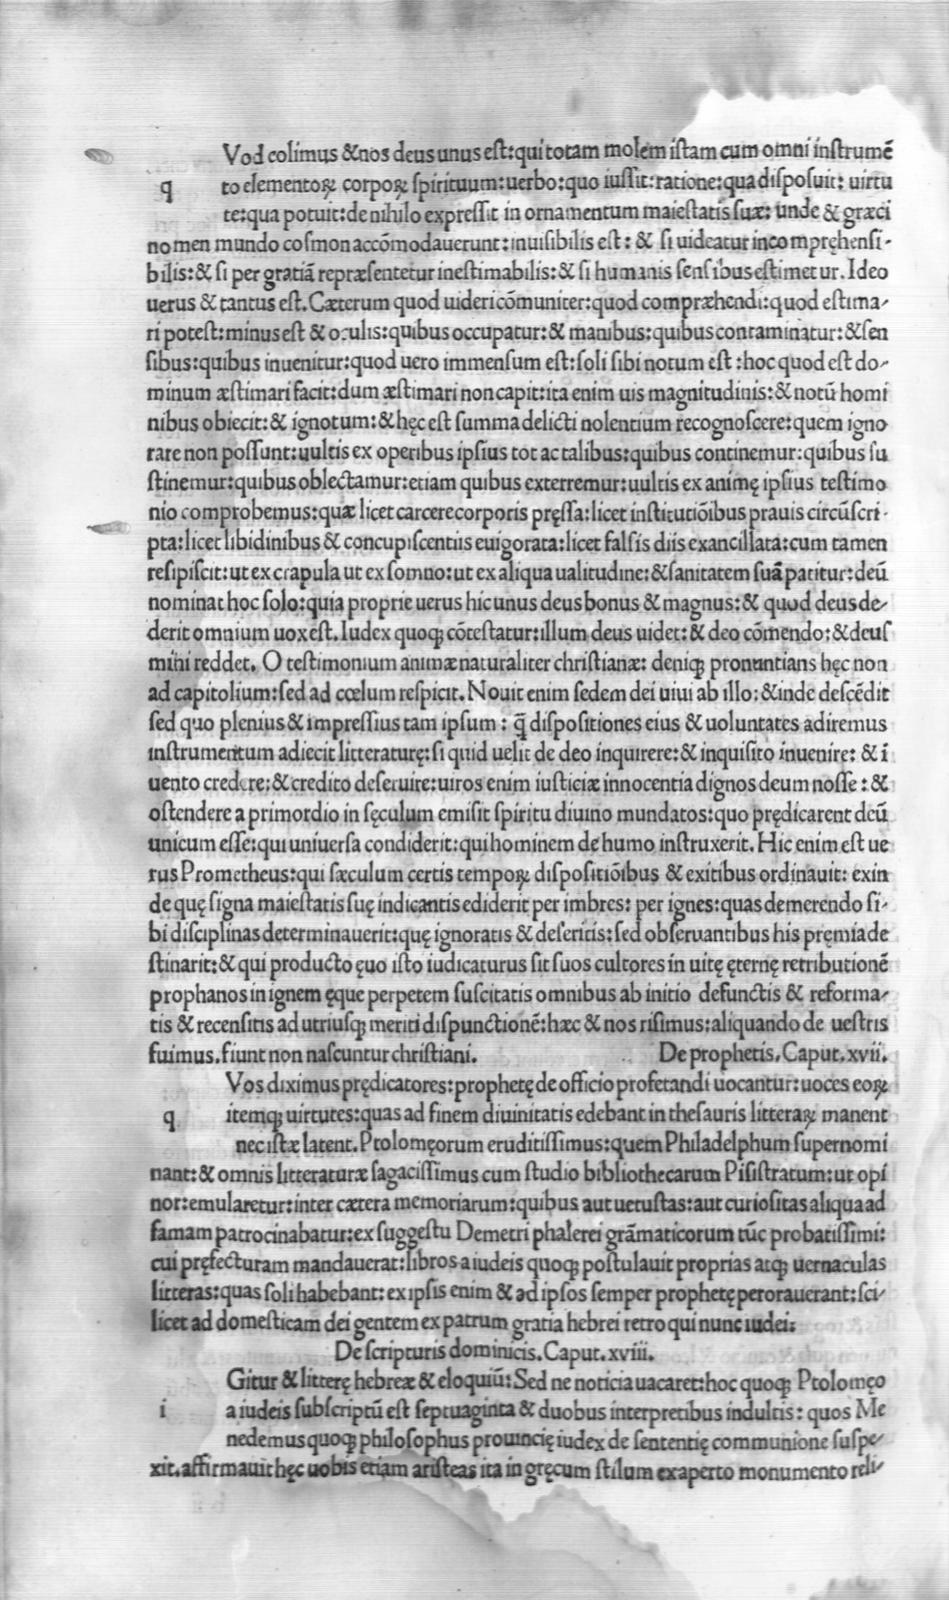 Vod colimus & nos deus unus est: qui totam molem istam cum omni instrumē
q to elementoꝝ corpoꝝ spirituum: uerbo: quo iussit: ratione: qua disposuit: uirtu
te: qua potuit: de nihilo expressit in ornamentum maiestatis suæ: unde & græci
nomen mundo cosmon accōmodauerunt: inuisibilis est: & si uideatur incompręhensi-
bilis: & si per gratiā repræsentetur inestimabilis: & si humanis sensibus estimetur. Ideo
uerus & tantus est. Cæterum quod uideri cōmuniter: quod compræhendi: quod estima-
ri potest: minus est & oculis: quibus occupatur: & manibus: quibus contaminatur: & sen
sibus: quibus inuenitur: quod uero immensum est: soli sibi notum est: hoc quod est do-
minum æstimari facit: dum æstimari non capit: ita enim uis magnitudinis: & notū homi
nibus obiecit: & ignotum: & hęc est summa delicti nolentium recognoscere: quem igno
rare non possunt: uultis ex operibus ipsius tot ac talibus: quibus continemur: quibus su
stinemur: quibus oblectamur: etiam quibus exterremur: uultis ex animę ipsius testimo
nio comprobemus: quæ licet carcere corporis pręssa: licet institutiōibus prauis circūscri-
pta: licet libidinibus & concupiscentiis euigorata: licet falsis diis exancillata: cum tamen
resipiscit: ut ex crapula ut ex somno: ut ex aliqua ualitudine: & sanitatem suā patitur: deū
nominat hoc solo: quia proprie uerus hic unus deus bonus & magnus: & quod deus de-
derit omnium uox est. Iudex quoqꝫ cōtestatur: illum deus uidet: & deo cōmendo: & deus
mihi reddet. O testimonium animæ naturaliter christianæ: deniqꝫ pronuntians hęc non
ad capitolium: sed ad cœlum respicit. Nouit enim sedem dei uiui ab illo: & inde descēdit
sed quo plenius & impressius tam ipsum: q̄ dispositiones eius & uoluntates adiremus
instrumentum adiecit litteraturę: si quid uelit de deo inquirere: & inquisito inuenire: & ī
uento credere: & credito deseruire: uiros enim iusticiæ innocentia dignos deum nosse: &
ostendere a primordio in sęculum emisit spiritu diuino mundatos: quo prędicarent deū
unicum esse: qui uniuersa condiderit: qui hominem de humo instruxerit. Hic enim est ue
rus Prometheus: qui sæculum certis tempoꝝ dispositiōibus & exitibus ordinauit: exin
de quę signa maiestatis suę indicantis ediderit per imbres: per ignes: quas demerendo si-
bi disciplinas determinauerit: quę ignoratis & deseritis: sed obseruantibus his pręmia de
stinarit: & qui producto ęuo isto iudicaturus sit suos cultores in uitę ęternę retributionē
prophanos in ignem ęque perpetem suscitatis omnibus ab initio defunctis & reforma-
tis & recensitis ad utriusqꝫ meriti dispunctionē: hæc & nos risimus: aliquando de uestris
fuimus. fiunt non nascuntur christiani. De prophetis. Caput. xvii.
Vos diximus prędicatores: prophetę de officio profetandi uocantur: uoces eoꝝ
q itemqꝫ uirtutes: quas ad finem diuinitatis edebant in thesauris litteraꝝ manent
nec istæ latent. Ptolomęorum eruditissimus: quem Philadelphum supernomi
nant: & omnis litteraturæ sagacissimus cum studio bibliothecarum Pisistratum: ut opi
nor: emularetur: inter cætera memoriarum: quibus aut uetustas: aut curiositas aliqua ad
famam patrocinabatur: ex suggestu Demetri phalerei grāmaticorum tūc probatissimi:
cui pręfecturam mandauerat: libros a iudeis quoqꝫ postulauit proprias atqꝫ uernaculas
litteras: quas soli habebant: ex ipsis enim & ad ipsos semper prophetę perorauerant: sci-
licet ad domesticam dei gentem ex patrum gratia hebrei retro qui nunc iudei:
De scripturis dominicis. Caput. xviii.
Gitur & litterę hebreæ & eloquiū: Sed ne noticia uacaret: hoc quoqꝫ Ptolomęo
i a iudeis subscriptū est septuaginta & duobus interpretibus indultis: quos Me
nedemus quoqꝫ philosophus prouincię iudex de sententię communione suspe-
xit. affirmauit hęc uobis etiam aristeas ita in gręcum stilum ex aperto monumento reli-